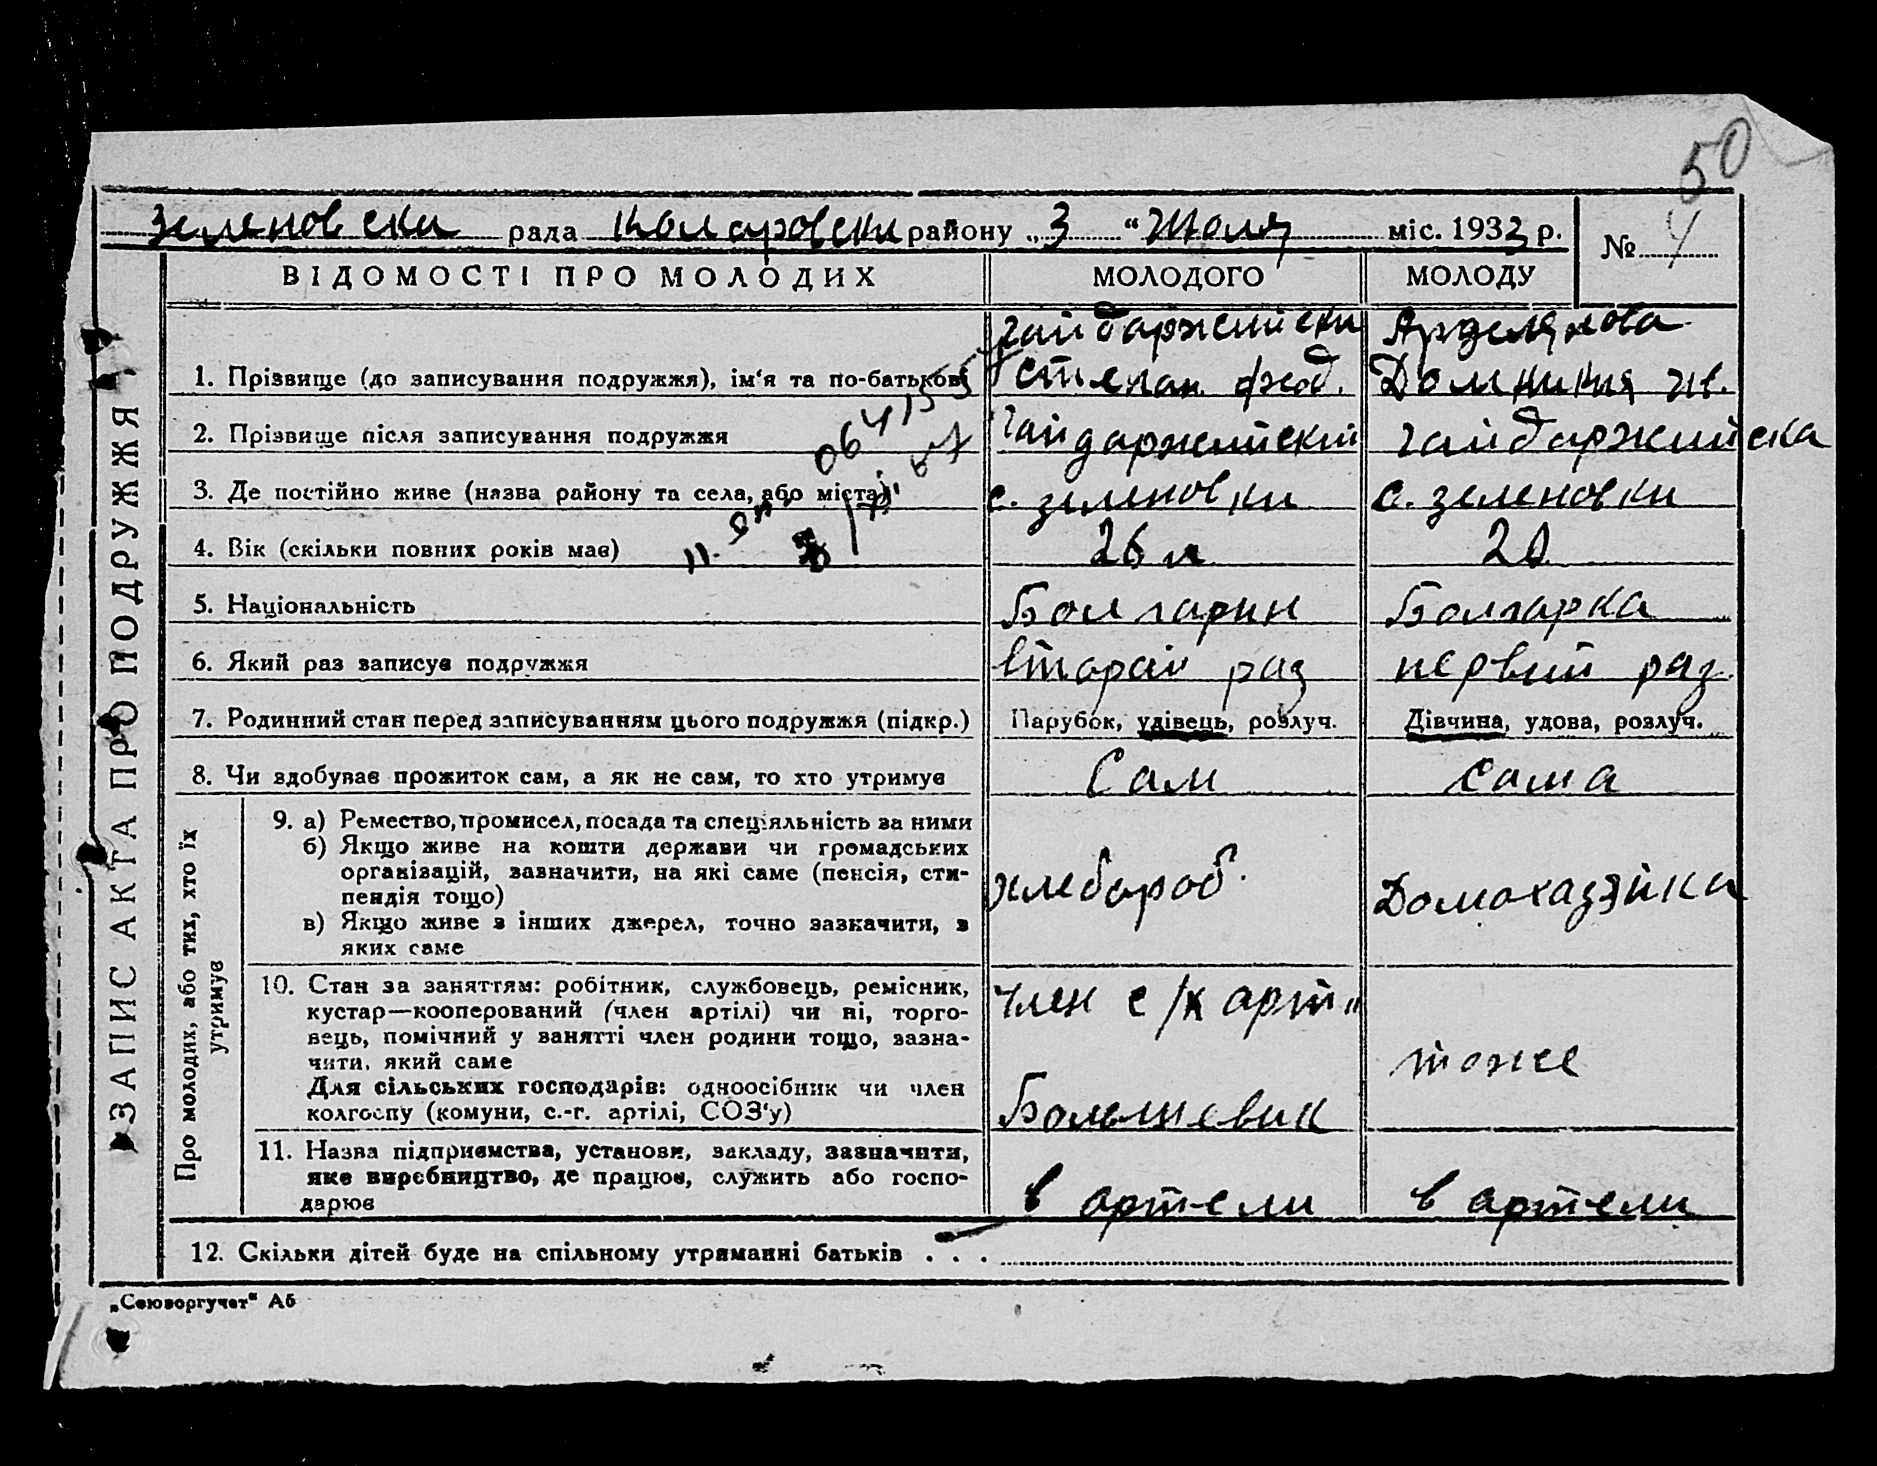 50
Зеленовска рада Коларовски району „3 “ Июля міс. 1933 р.
№ 4
ЗАПИС АКТА ПРО ПОДРУЖЖЯ
ВІДОМОСТІ ПРО МОЛОДИХ МОЛОДОГО МОЛОДУ
Гайдаржийски
1. Прізвище (до записування подружжя), ім‘я та по-батькові Степан фжод. Домникия ив.
2. Прізвище після записування подружжя Гайдаржийский Гайдаржийска
064155
3. Де постійно живе (назва району та села, або міста) с. зеленовки с. зеленовки
4. Вік (скільки повних років має) 26 л 20
5. Національність Болгарин Болгарка
6. Який раз записує подружжя вторий раз первий раз
7. Родинний стан перед записуванням цього подружжя (підкр.) Парубок, удівець, розлуч. Дівчина, удова, розлуч.
8. Чи здобуває прожиток сам, а як не сам, то хто утримує Сам сама
Про молодих, або тих, хто їх утримує
9. а) Ремество, промисел, посада та спеціяльність за ними
б) Якщо живе на кошти держави чи громадських
організацій, зазначити, на які саме (пенсія, сти-
пендія тощо) хлебороб. Домохазяйка
в) Якщо живе з інших джерел, точно зазначити, з
яких саме
10. Стан за заняттям: робітник, службовець, ремісник, член с/х арт „
кустар—кооперований (член артілі) чи ні, торго-
вець, помічний у занятті член родини тощо, зазна-
чити, який саме тоже
Для сільських господарів: одноосібник чи член
колгоспу (комуни, с.-г. артілі, СОЗ‘у) Большевик
11. Назва підприємства, установи, закладу, зазначити,
яке виробництво, де працює, служить або госпо-
дарює в артели в артели
12. Скільки дітей буде на спільному утриманні батьків . . .
„Союзоргучет“ Аб